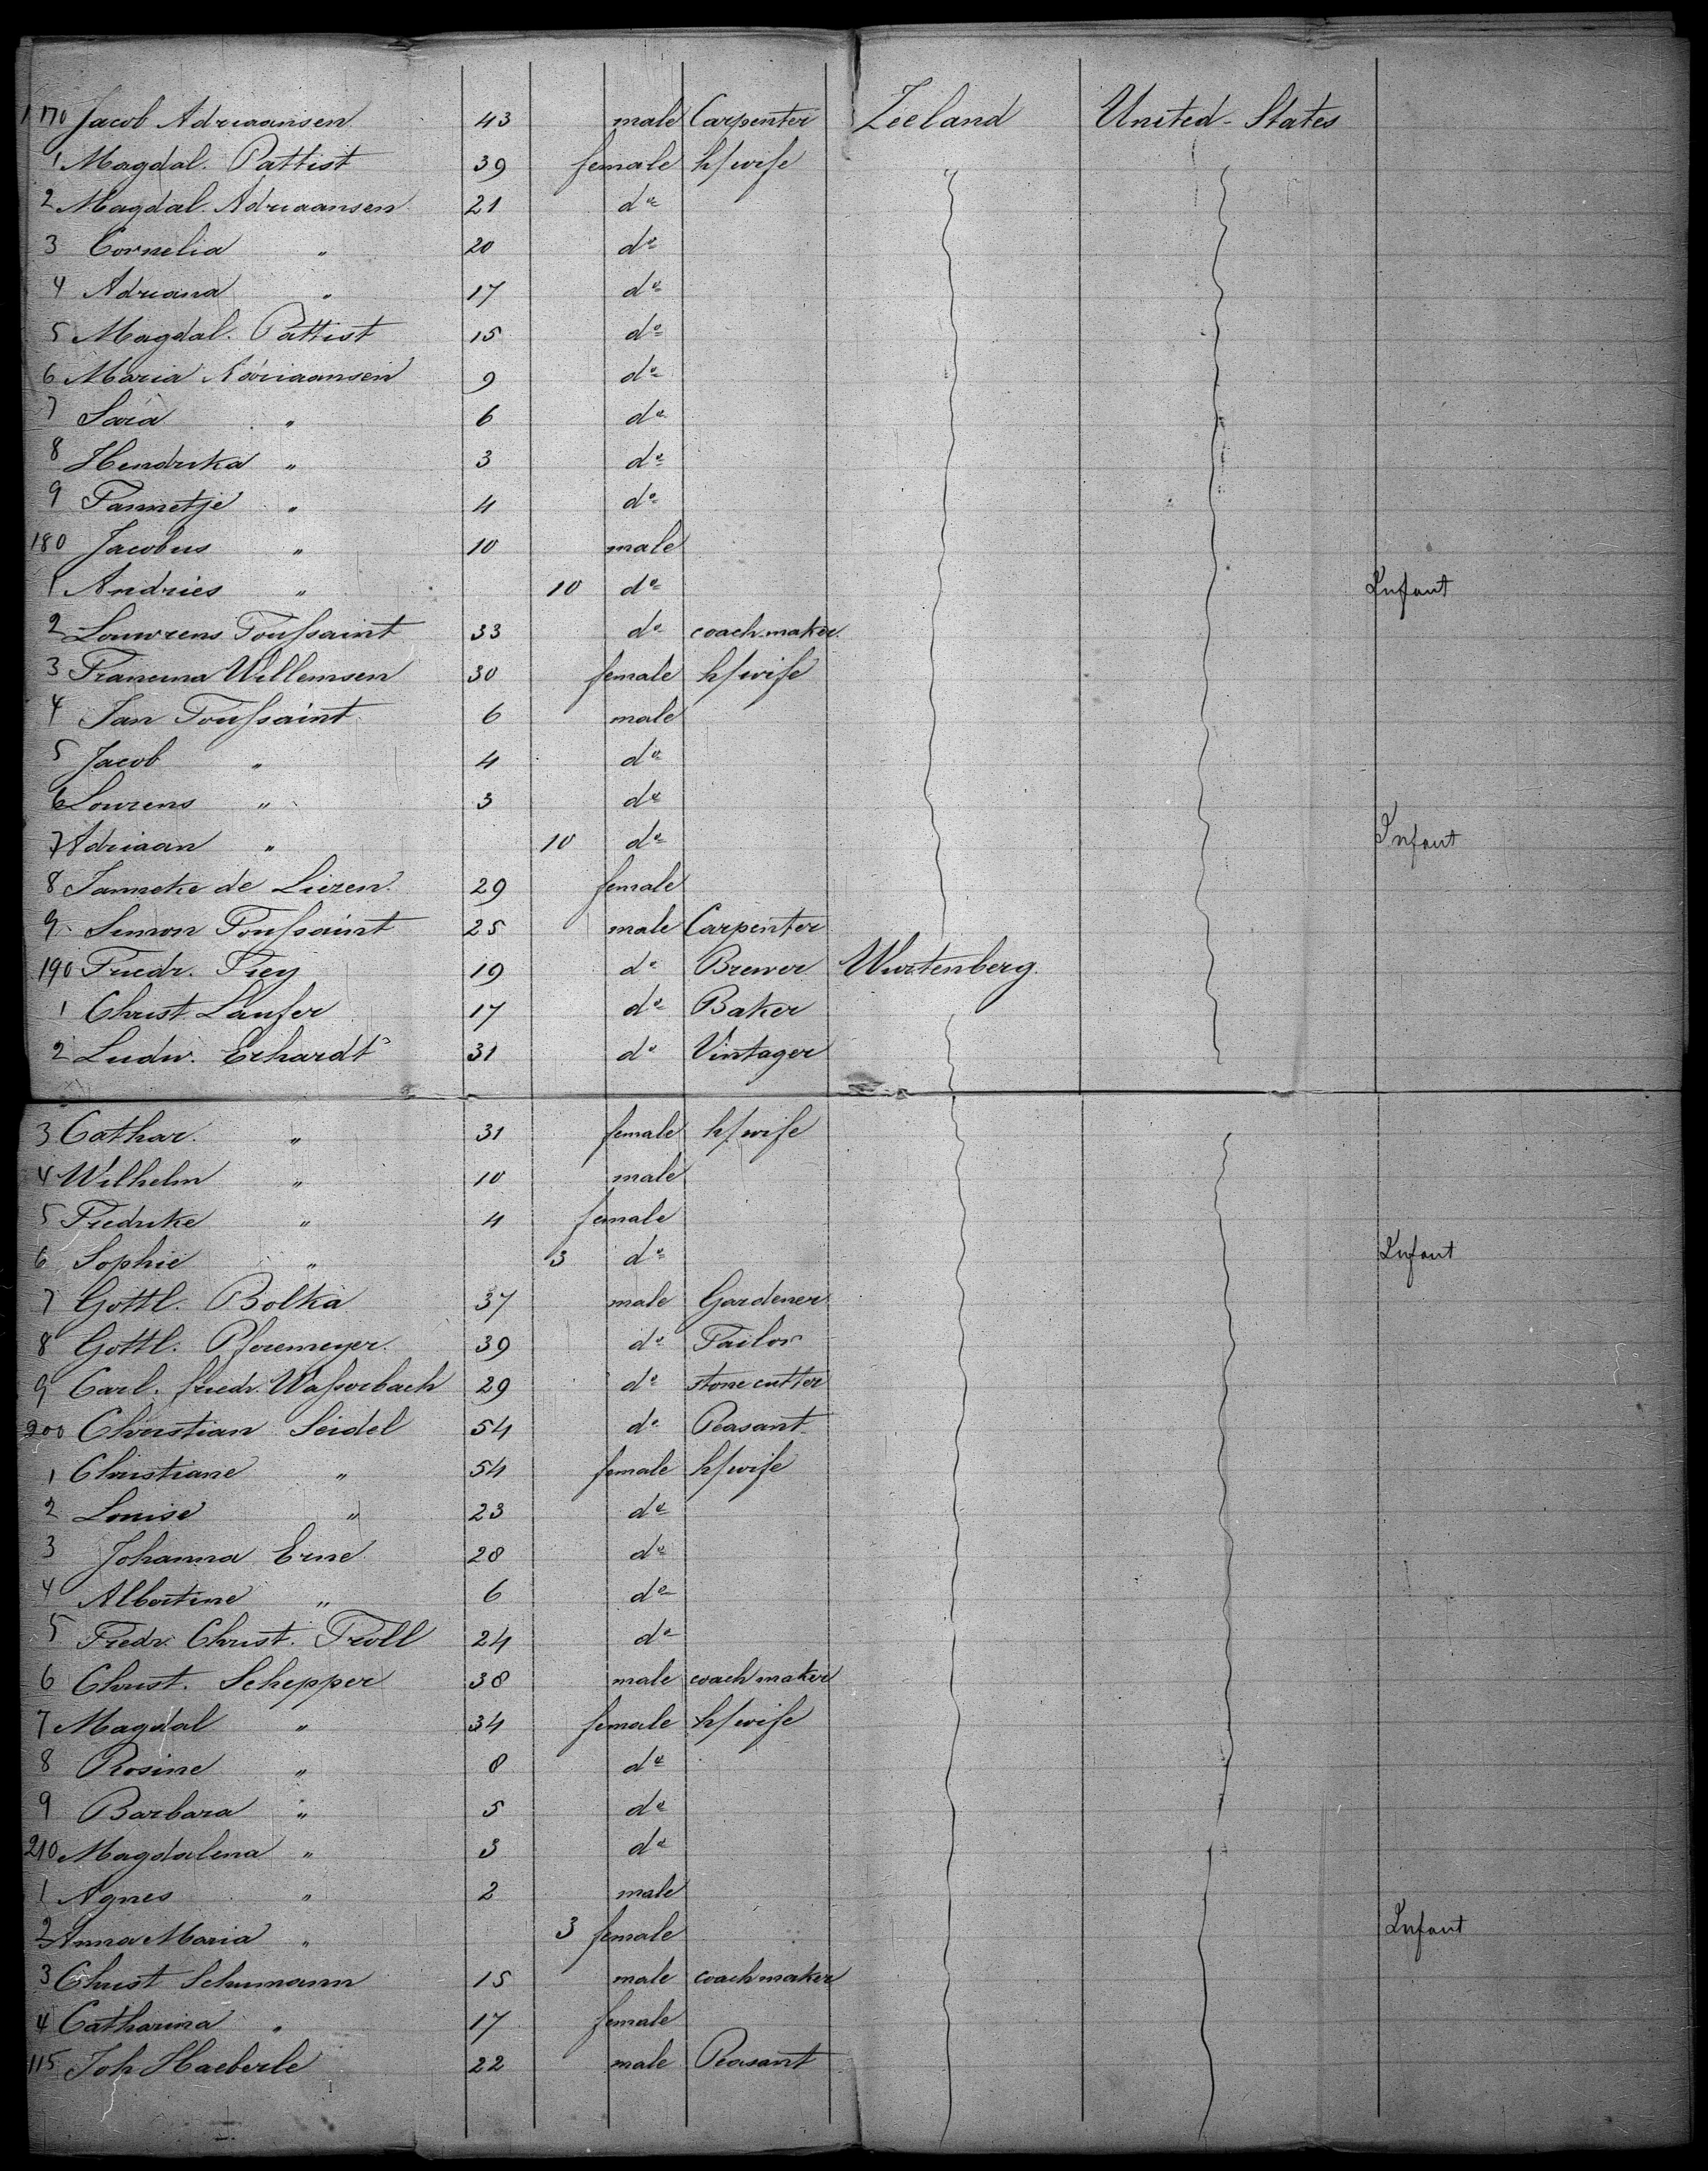 170 Jacob Adriaansen 43 male Carpenter Zeeland United-States
1 Magdal. Pattist 39 female h/wife
2 Magdal. Adriaansen 21 do
3 Cornelia " 20 do
4 Adriana " 17 do
5 Magdal. Pattist 15 do
6 Maria Adriaansen 9 do
7 Sara " 6 do
8 Hendrika " 3 do
9 Tannetje " 4 do
180 Jacobus " 10 male
1 Andries " 10 do Infant
2 Louwrens Toussaint 33 do coach-maker
3 Francina Willemsen 30 female h/wife
4 Jan Toussaint 6 male
5 Jacob " 4 do
6 Lourens " 3 do
7 Adriaan " 10 do Infant
8 Janneke de Liezen. 29 female
9 Simon Toussaint 25 male Carpenter
190 Friedr. Frey 19 do Brewer Wurtenberg.
1 Christ Laufer 17 do Baker
2 Ludw. Erhardt 31 do Vintager
3 Cathar. " 31 female h/wife
4 Wilhelm " 10 male
5 Fredrike " 4 female
6 Sophie " 3 do Infant
7 Gottl. Bolka 37 male Gardener
8 Gottl. Pforemeyer. 39 do Tailor
9 Carl. friedr. Wasserbach 29 do stone cutter
200 Christian Seidel 54 do Peasant
1 Christiane " 54 female h/wife
2 Louise " 23 do
3 Johanna Erne 28 do
4 Albertine " 6 do
5 Fredr. Christ. Troll 24 do
6 Christ. Schepper 38 male coach maker
7 Magdal " 34 female h/wife
8 Rosine " 8 do
9 Barbara " 5 do
210 Magdalena " 3 do
1 Agnes " 2 male
2 Anna Maria " 3 female Infant
3 Christ Schumann 15 male coachmaker
4 Catharina " 17 female
115 Joh Haeberle 22 male Peasant